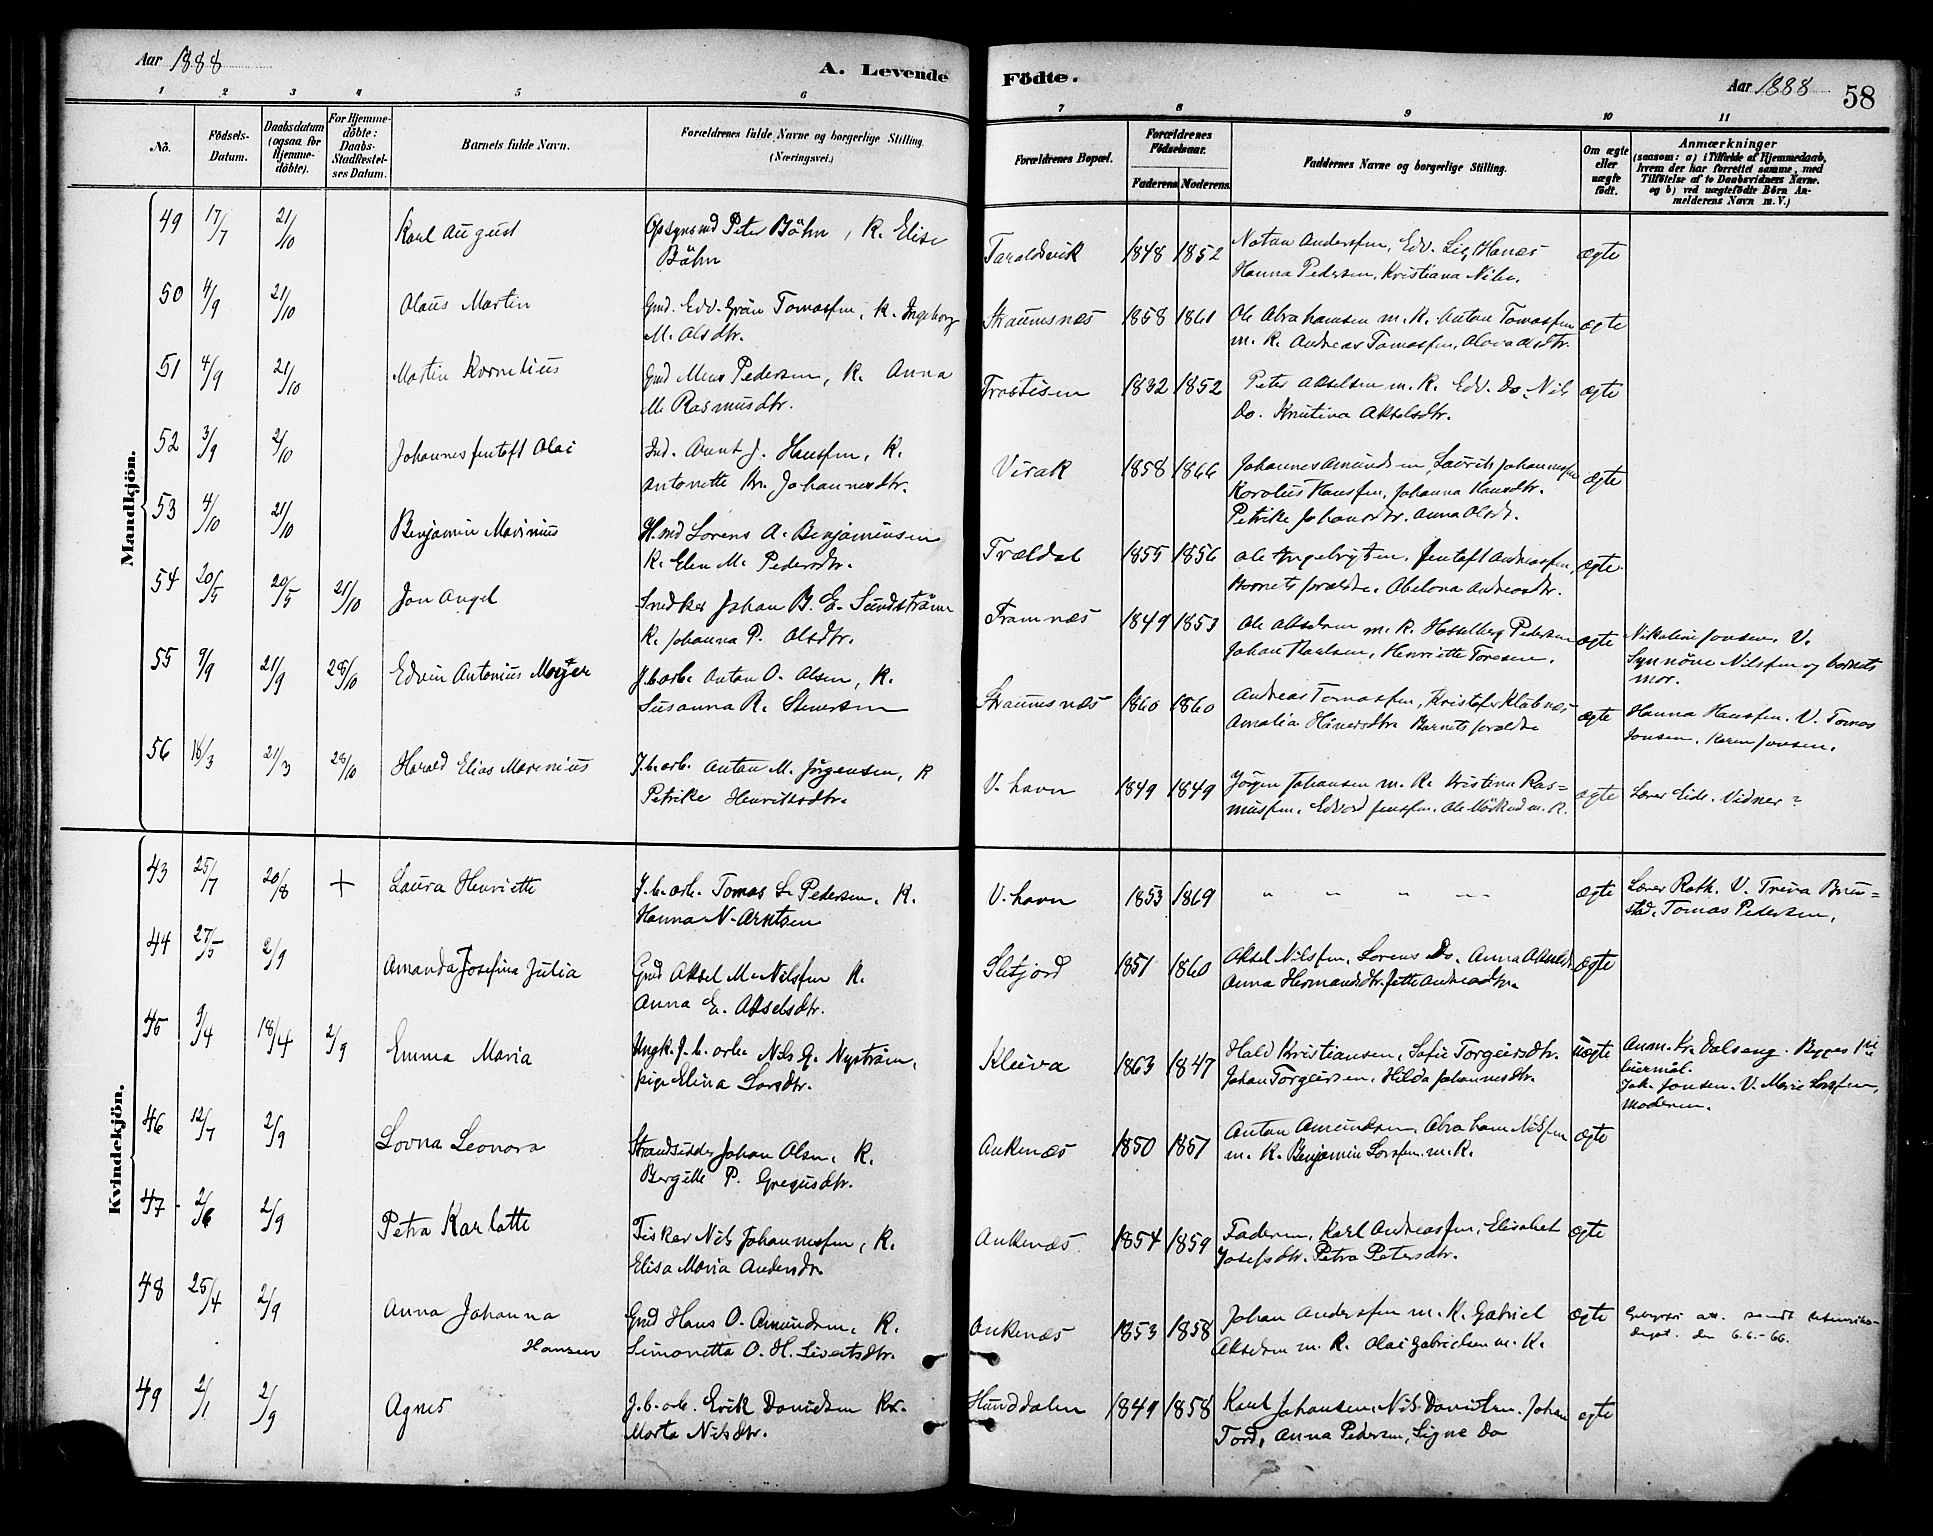 Aar 1888
A. Levende
Födte.
Aar 1888
58
1 2 3 4 5 6 7 8 9 10 11
No.
Födsels-
Datum.
Daabsdatum
(ogsaa for
Hjemme-
döbte).
For Hjemme-
döbte:
Daabs-
Stadfæstel-
ses Datum.
Barnets fulde Navn.
Forældrenes fulde Navne og borgerlige Stilling.
(Næringsvei.)
Forældrenes Bopæl.
Forældrenes
Födselsaar.
Faderens Moderens
Faddernes Navne og borgerlige Stilling.
Om ægte
eller
uægte
födt.
Anmærkninger
(saasom: a) i Tilfælde af Hjemmedaab,
hvem der har forrettet samme, med
Tilföielse af to Daabsvidners Navne.
og b) ved uægtefödte Börn An-
melderens Navn m. V.)
Mandkjön.
49 17/7 21/10 Karl August Opsynsmd Peter Böhn, K. Elise
Böhn
Taraldsvik 1848 1852 Notan Anderssen, Edv. Hanes
Hanna Pedersen, Kristiana Nils. ægte
50 4/9 21/10 Olaus Martin Gmd. Edv. Grön Tomassen, K. Ingeborg
M. Olsdtr.
Straumsnæs 1858 1861 Ole Abrahamsen m. K. Anton Tomassen
m. K. Andreas Tomassen, Olava Olsdtr. ægte
51 4/9 21/10 Martin Kornelius Gmd Mens Pedersen, K. Anna
M. Rasmusdtr.
1832 1852 Peter Akselsen m. K. Edv. Do. Nils
Do. Kristina Akselsdtr. ægte
52 3/9 2/10 Johannes Jentoft Olai Ind. Arent J. Hanssen, K.
Antonette Kr. Johannesdtr.
Virak 1858 1866 Johannes Amundsen, Laurits Johannessen
Karolus Hanssen, Johanna Hansdtr.
Petrike Johansdtr. Anna Olsdtr. ægte
53 4/10 21/10 Benjamin Marinius H.md Lorens A. Benjaminsen
K. Elen M. Pedersdtr.
Trældal 1855 1856 Ole Ingebrigtsen, Jentoft Andreassen,
Barnets forældre. Abelona Andreasdtr. ægte
54 20/5 20/5 21/10 Jon Angel Snedker Johan B. E. Sundström
K. Johanna P. Olsdtr.
Framnæs 1849 1853 Ole Akselsen m. K. Hasselberg Pedersen
Johan Paulsen, Henriette Toresen. ægte
Nikoline Jonsen. V.
Synnöve Nilssen og barnets
mor.
55 9/9 21/9 28/10 Edvin Antonius Meyer J.b.arb. Anton O. Olsen, K.
Susanna R. Stenersen
Straumsnæs 1860 1860 Andreas Tomassen, Kristofer Klubnæs
Amalia Hansdtr. Barnets forældre ægte
Hanna Hanssen. V. Tomas
Jonsen. Karen Jonsen.
56 18/3 21/3 28/10 Harald Elias Marenius J.b.arb. Anton M. Jörgensen, K
Petrike Henriksdtr.
V. havn 1849 1849 Jörgen Johansen m. K. Kristina Ras=
mussen. Edvard Jenssen. Ole m. K. ægte
Lærer Eide. Vidner?
Kvindekjön.
43 25/7 20/8 + Laura Henriette J.b.arb. Tomas L. Pedersen. K.
Hanna N. Arntsen
V. havn 1853 1869 " " " " ægte
Lærer Rath. V. Trina Bru=
stad. Tomas Pedersen.
44 27/5 2/9 Amanda Josefina Julia Gmd Aksel M. Nilssen K.
Anna E. Akselsdtr.
Sletjord 1851 1860 Aksel Nilssen. Lorens Do. Anna Akselsdtr.
Anna Hermansdtr. Jette Andreasdtr. ægte
45 9/4 18/4 2/9 Emma Maria Ungk. J.b.arb. Nils G. Nyström,
pige Elina Larsdtr.
Kleiva 1863 1847 Hald Kristiansen, Sofie Torgersdtr.
Johan Torgersen, Hilda Johannesdtr. uægte
Anm. Kr. Dalseng.
leiermål.
Jak. Jonsen. V. Marie Larssen,
Moderen.
46 12/7 2/9 Lovna Leonora Strandsidder Johan Olsen, K.
Bergitte P. Gregusdtr.
Ankenæs 1850 1851 Anton Amundsen, Abraham Nilssen
m. K. Benjamin Larssen. m. K. ægte
47 2/6 2/9 Petra Karlotte Fisker Nils Johannessen, K.
Elisa Maria Andersdtr.
Ankenæs. 1854 1859 Faderen, Karl Andreassen, Elisabet
Josefsdtr. Petra Petersdtr. ægte
48 25/4 2/9 Anna Johanna
Hansen
Gmd Hans O. Amundsen. K.
Simonetta O. H. Sivertsdtr.
Ankenæs 1853 1858 Johan Anderssen m. K. Gabriel
Akselsen m. K. Olai Gabrielsen m. K. ægte
att. sendt
dept. den 6.6.-66.
49 2/1 2/9 Agnes J.b.arb. Erik Danielsen K.
Marta Nilsdtr.
Hunddalen 1849 1858 Karl Johansen, Nils Johan
Tord, Anna Pedersen, Signe Do ægte